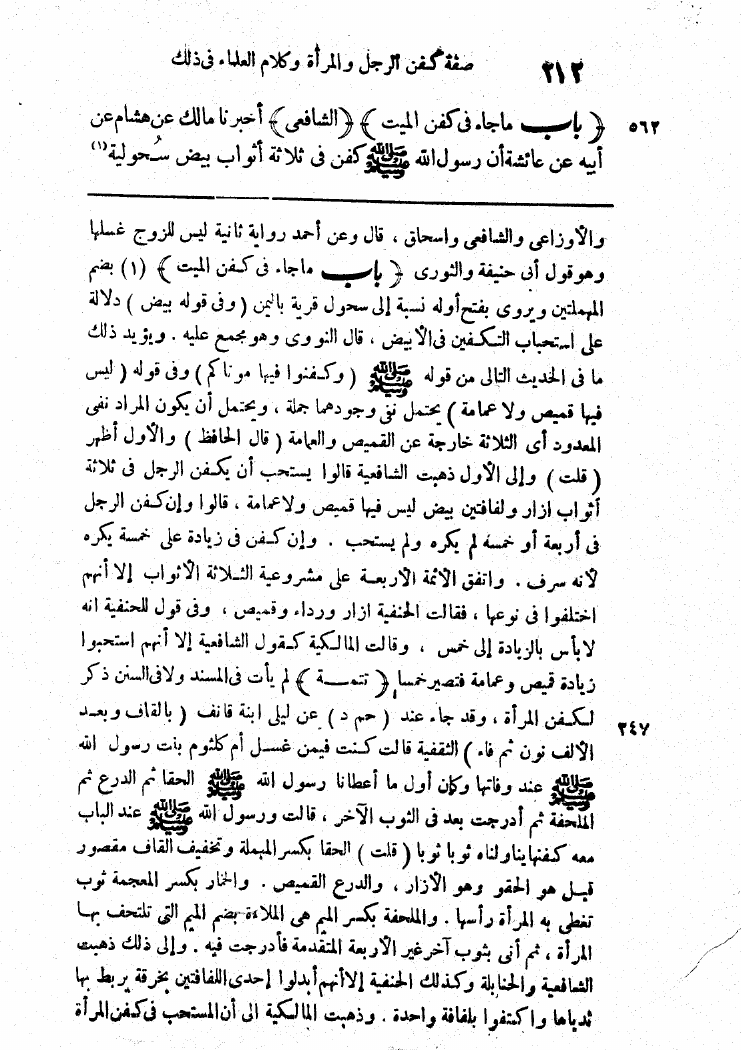 ٢١٢ صفة كفن الرجل والمرأة وكلام العلماء فى ذلك
٥٦٢ ﴿ باب ماجاء فى كفن الميت ﴾ ﴿الشافعى﴾ أخبرنا مالك عن هشام عن
أبيه عن عائشة أن رسول الله ﷺ كفن فى ثلاثة أثواب بيض سُحولية (١)
والأوزاعى والشافعى واسحاق ، قال وعن أحمد رواية ثانية ليس للزوج غسلها
وهو قول أبى حنيفة والثورى ﴿ باب ماجاء فى كفن الميت ﴾ (١) بضم
المهملتين ويروى بفتح أوله نسبة إلى سحول قرية باليمن (وفى قوله بيض) دلالة
على استحباب التكفين فى الأبيض ، قال النووى وهو مجمع عليه . ويؤيد ذلك
ما فى الحديث التالى من قوله ﷺ (وكفنوا فيها موتاكم) وفى قوله (ليس
فيها قميص ولا عمامة) يحتمل نفى وجودهما جملة ، ويحتمل أن يكون المراد نفى
المعدود أى الثلاثة خارجة عن القميص والعمامة (قال الحافظ) والأول أظهر
(قلت) وإلى الأول ذهبت الشافعية قالوا يستحب أن يكفن الرجل فى ثلاثة
أثواب ازار ولفافتين بيض ليس فيها قميص ولا عمامة ، قالوا وإن كفن الرجل
فى أربعة أو خمسة لم يكره ولم يستحب . وإن كفن فى زيادة على خمسة يكره
لأنه سرف . واتفق الأئمة الأربعة على مشروعية الثلاثة الأثواب إلا أنهم
اختلفوا فى نوعها ، فقالت الحنفية ازار ورداء وقميص ، وفى قول للحنفية انه
لا بأس بالزيادة إلى خمس ، وقالت المالكية كقول الشافعية إلا أنهم استحبوا
زيادة قميص وعمامة فتصير خمسا ﴿ تتمة ﴾ لم يأت فى المسند ولا فى السنن ذكر
٢٤٧ لكفن المرأة ، وقد جاء عند (حم د) عن ليلى ابنة قانف (بالقاف وبعد
الألف نون ثم فاء) الثقفية قالت كنت فيمن غسل أم كلثوم بنت رسول الله
ﷺ عند وفاتها وكان أول ما أعطانا رسول الله ﷺ الحقا ثم الدرع ثم
الملحفة ثم أدرجت بعد فى الثوب الآخر ، قالت ورسول الله ﷺ عند الباب
معه كفنها يناولناه ثوبا ثوبا (قلت) الحقا بكسر المهملة وتخفيف القاف مقصور
قيل هو الحقو وهو الأزار ، والدرع القميص . والخمار بكسر المعجمة ثوب
تغطى به المرأة رأسها . والملحفة بكسر الميم هى الملاءة بضم الميم التى تلتحف بها
المرأة ، ثم أتى بثوب آخر غير الأربعة المتقدمة فأدرجت فيه . وإلى ذلك ذهبت
الشافعية والحنابلة وكذلك الحنفية إلا أنهم أبدلوا إحدى اللفافتين بخرقة يربط بها
ثدياها واكتفوا بلفافة واحدة . وذهبت المالكية الى أن المستحب فى كفن المرأة